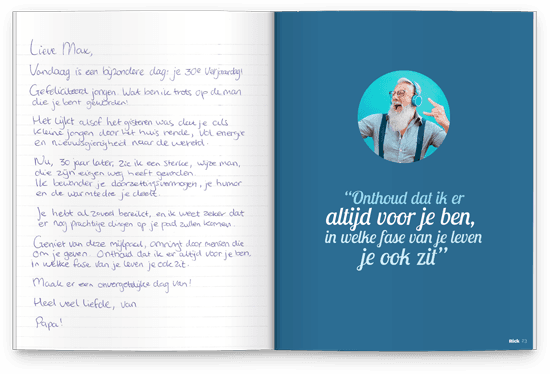 Lieve Max,
Vandaag is een bijzondere dag: je 30e verjaardag!
Gefeliciteerd jongen. Wat ben ik trots op de man
die je bent geworden!
Het lijkt alsof het gisteren was dat je als
kleine jongen door het huis rende, vol energie
en nieuwsgierigheid naar de wereld.
Nu, 30 jaar later, zie ik een sterke, wijze man,
die zijn eigen weg heeft gevonden.
Ik bewonder je doorzettingsvermogen, je humor
en de warmte die je deelt.
Je hebt al zoveel bereikt, en ik weet zeker dat
er nog prachtige dingen op je pad zullen komen.
Geniet van deze mijlpaal, omringt door mensen die
om je geven. Onthoud dat ik er altijd voor je ben,
in welke fase van je leven je ook zit.
Maak er een onvergetelijke dag van!
Heel veel liefde, van
Papa!
“Onthoud dat ik er
altijd voor je ben,
in welke fase van je leven
je ook zit”
Rick